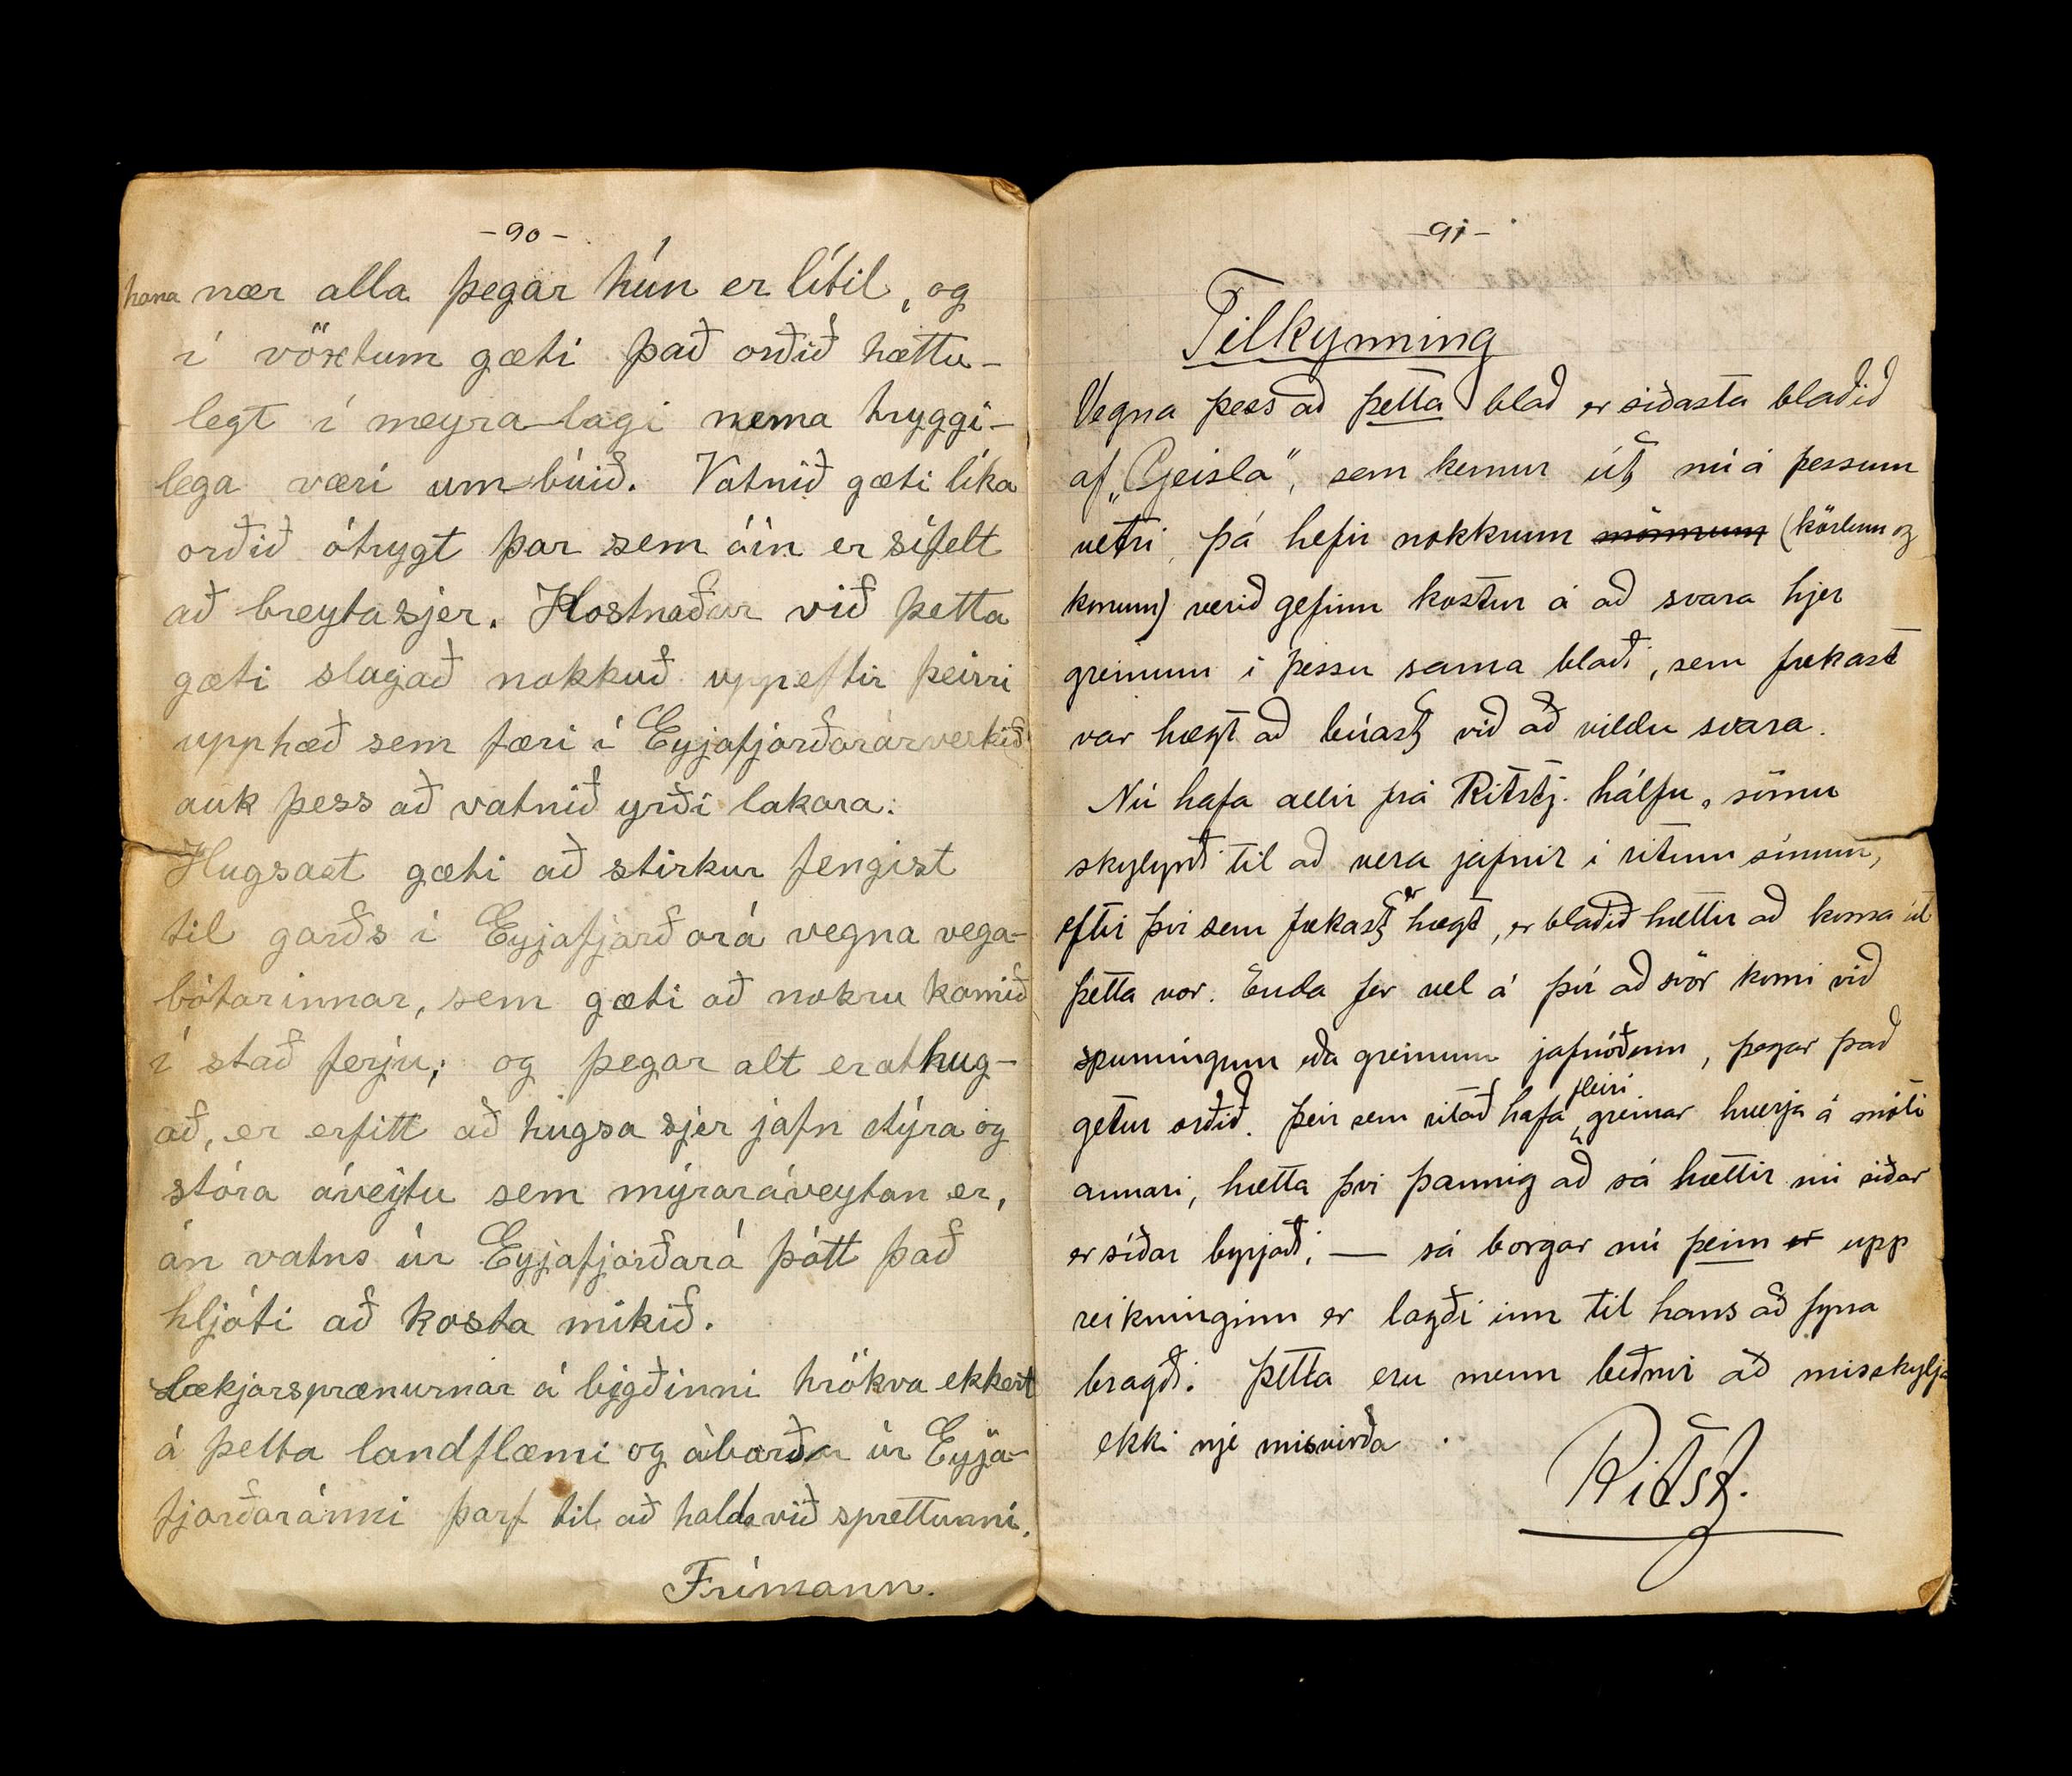 - 90 -
hana nær alla þegar hún er lítil, og
í vöxtum gæti það orðið hættu-
legt í meyra lagi nema tryggi-
lega væri umbúið. Vatnið gæti líka
orðið ótrygt þar sem áin er sífelt
að breyta sjer. Kostnaður við þetta
gæti slagað nokkuð uppeftir þeirri
upphæð sem færi í Eyjafjarðarárverkið
auk þess að vatnið yrði lakara.
Hugsast gæti að stirkur fengist
til garðs í Eyjafjarðará vegna vega-
bótarinnar, sem gæti að nokru komið
í stað ferju; og þegar alt er athug-
að, er erfitt að hugsa sjer jafn dýra og
stóra áveytu sem mýraráveytan er,
án vatns úr Eyjafjarðará þótt það
hljóti að kosta mikið.
Lækjarsprænurnar á bygðinni hrökva ekkert
á þetta landflæmi og áburður úr Eyja-
fjarðaránni þarf til að halda við sprettunni.
Frímann.
- 91 -
Tilkynning
Vegna þess að þetta blað er síðasta blaðið
af „Geisla", sem kemur út nú á þessum
vetri, þá hefir nokkrum mönnum (körlum og
konum) verið gefinn kostur á að svara hjer
greinum í þessu sama blaði, sem frekast
var hægt að búast við að vildu svara.
Nú hafa allir frá Ritstj. hálfu, sömu
skylyrði til að vera jafnir í ritum sínum,
eftir því sem frekast er hægt, er blaðið hættir að koma út
þetta vor. Enda fer vel á því að svör komi við
spurningum eða greinum jafnóðum, þegar það
getur orðið. Þeir sem ritað hafa fleiri greinar hverja á móti
annari, hætta því þannig að sá hættir nú síðar
er síðar byrjaði, — sá borgar nú þeim er upp
reikninginn er lagði inn til hans að fyrra
bragði. Þetta eru menn beðnir að misskylja
ekki nje misvirða.
Ritstj.